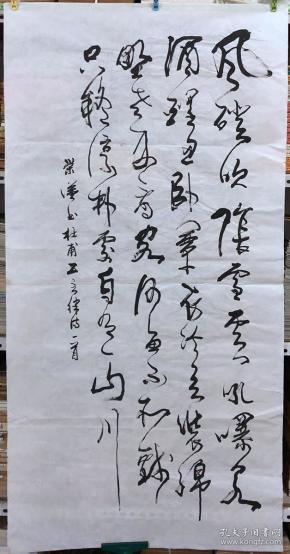 风磴吹陰雪云门吼瀑泉
酒醒思卧簟衣冷欲装绵
野老来看客河鱼不取钱
只疑淳朴處自有一山川
书杜甫五言律诗一首
孔夫子旧书网